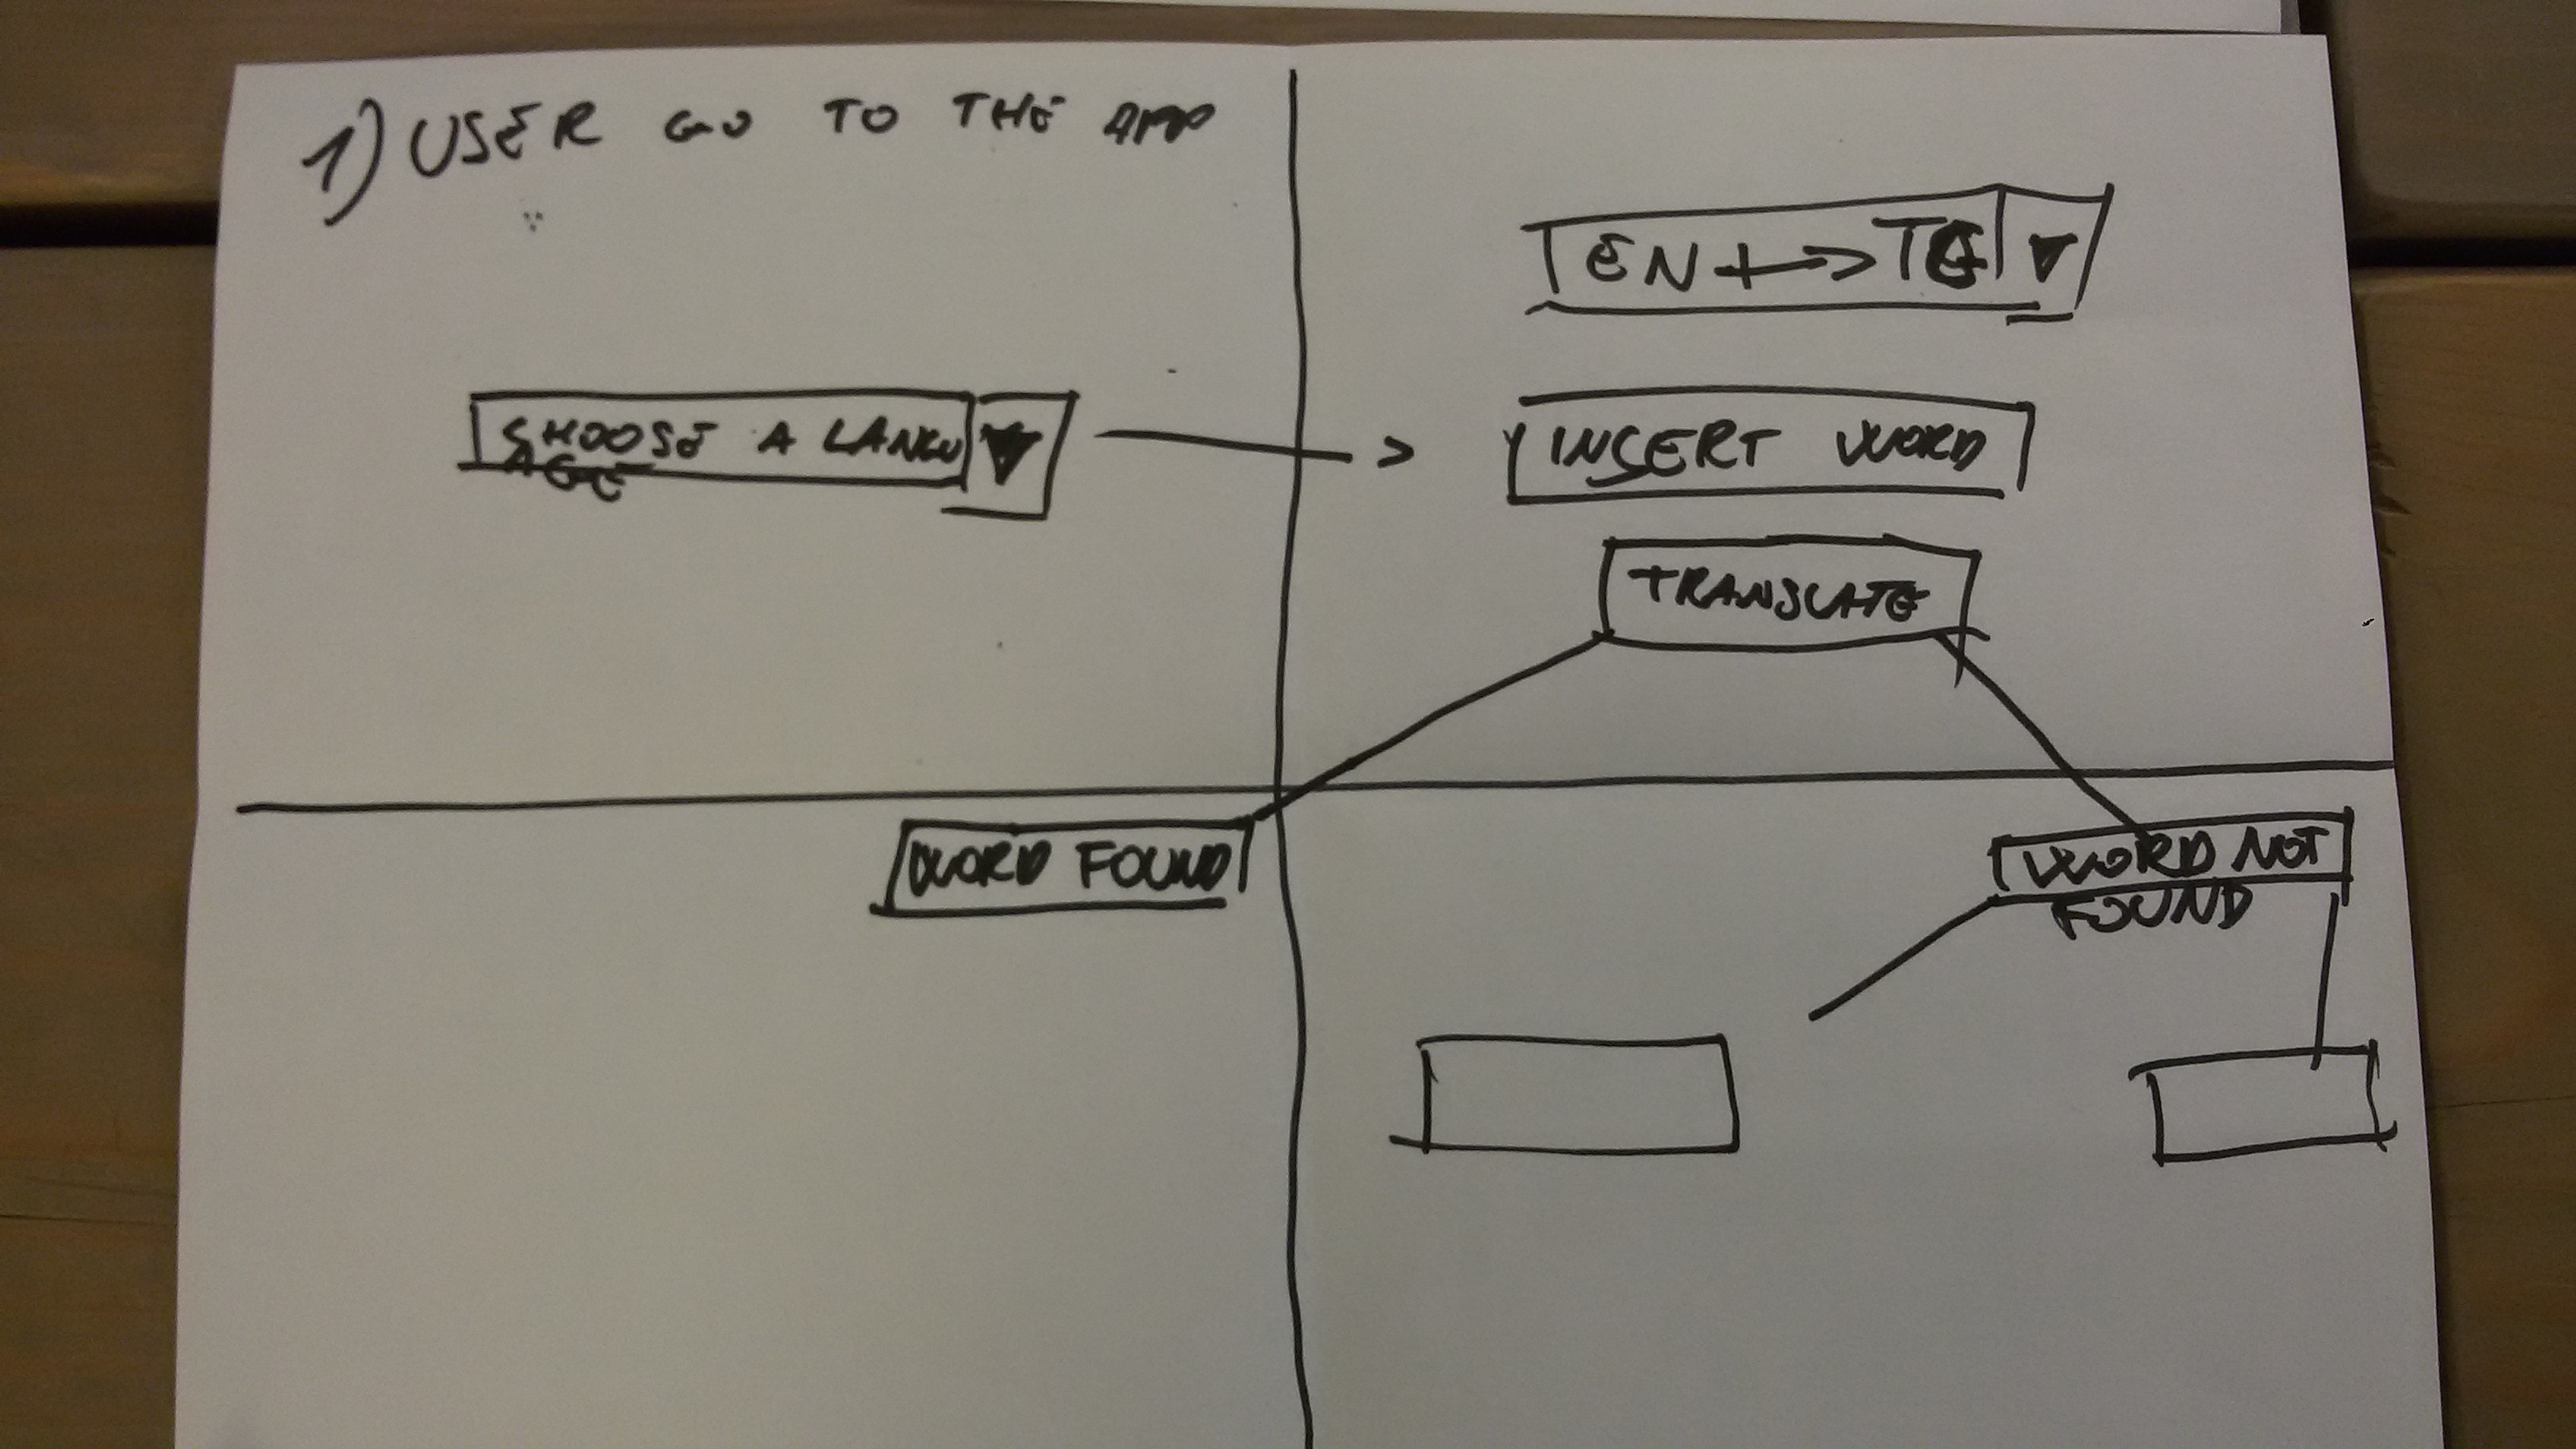 1) USER GO TO THE APP
CHOOSE A LANGU
AGE
EN <-> TE
INSERT WORD
TRANSLATE
WORD FOUND
WORD NOT
FOUND